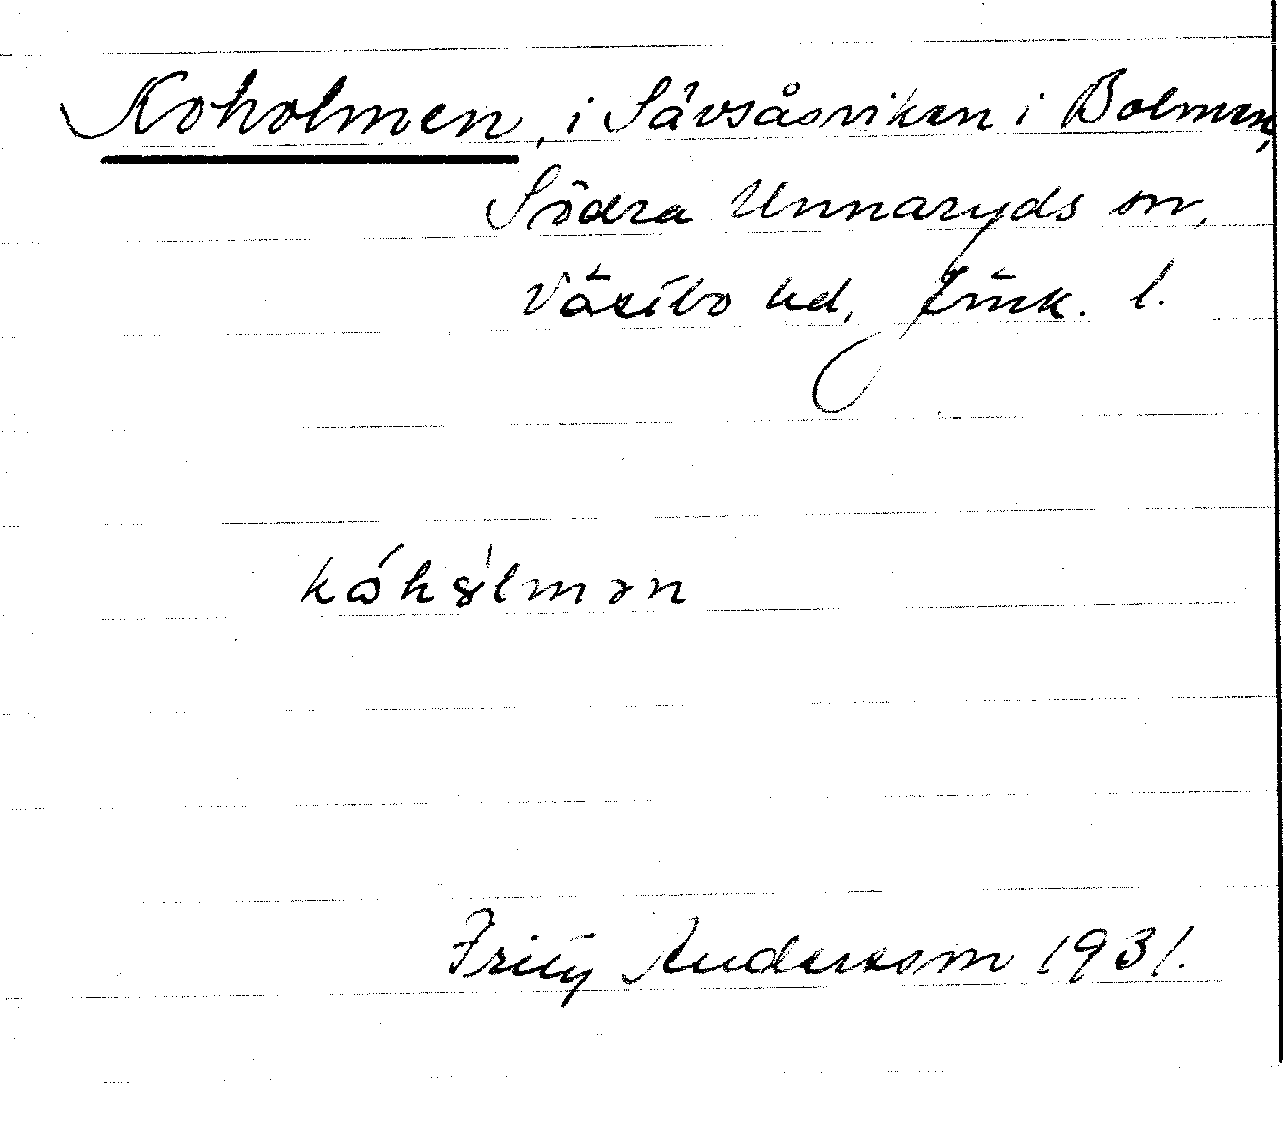 Koholmen, i Sävsåsviken i Bolmen,
Södra Unnaryds sn,
Västbo hd, Jönk. l.
kóhòlmən
Fritz Andersson 1931.